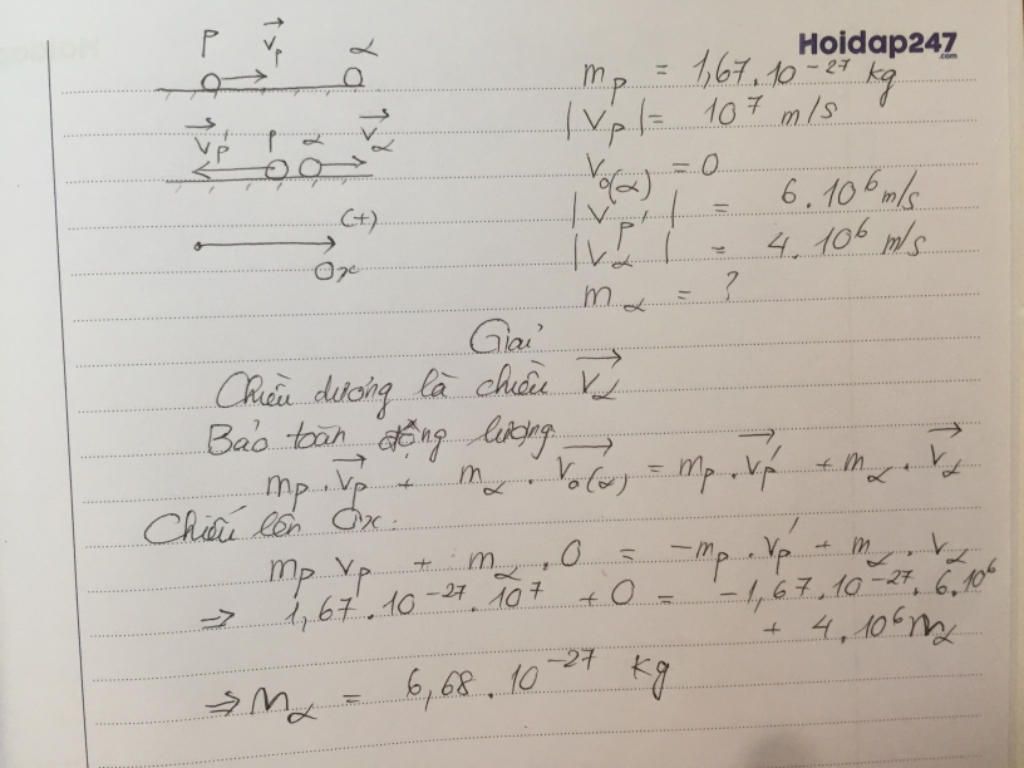 Hoidap247
.com
P v⃗p α
mp = 1,67.10⁻²⁷ kg
|Vp| = 10⁷ m/s
v⃗p' P α v⃗α
V₀(α) = 0
|Vp'| = 6.10⁶ m/s
(+)
|Vα| = 4.10⁶ m/s
Ox
mα = ?
Giải
Chiều dương là chiều v⃗α
Bảo toàn động lượng.
mp.v⃗p + mα.v⃗₀(α) = mp.v⃗p' + mα.v⃗α
Chiếu lên Ox:
mp vp + mα.0 = -mp.vp' + mα.vα
=> 1,67.10⁻²⁷.10⁷ + 0 = -1,67.10⁻²⁷.6.10⁶
+ 4.10⁶mα
=> mα = 6,68.10⁻²⁷ kg